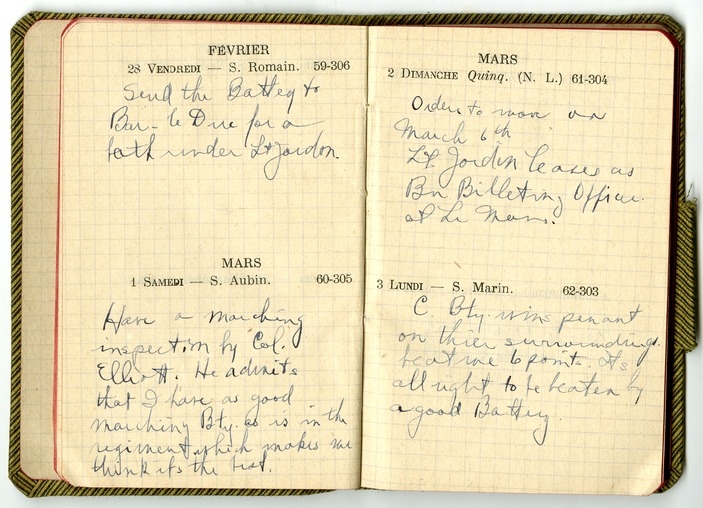 FÉVRIER
28 VENDREDI — S. Romain. 59-306
Send the Battey to
Bar-le Due for a
bath under Lt Jordon.
MARS
1 SAMEDI — S. Aubin. 60-305
Have a marching
inspection by Col.
Elliott. He admits
that I have as good
marching Bty. as is in the
regiment which makes me
think its the best.
MARS
2 DIMANCHE Quinq. (N. L.) 61-304
Orders to move on
March 6th
Lt. Jordin leaves as
Bn Billeting Officer
at Le Mans.
3 LUNDI — S. Marin. 62-303
C. Bty. wins penant
on thier surroundings.
beat me 6 points. Its
all right to be beaten by
a good Battey.